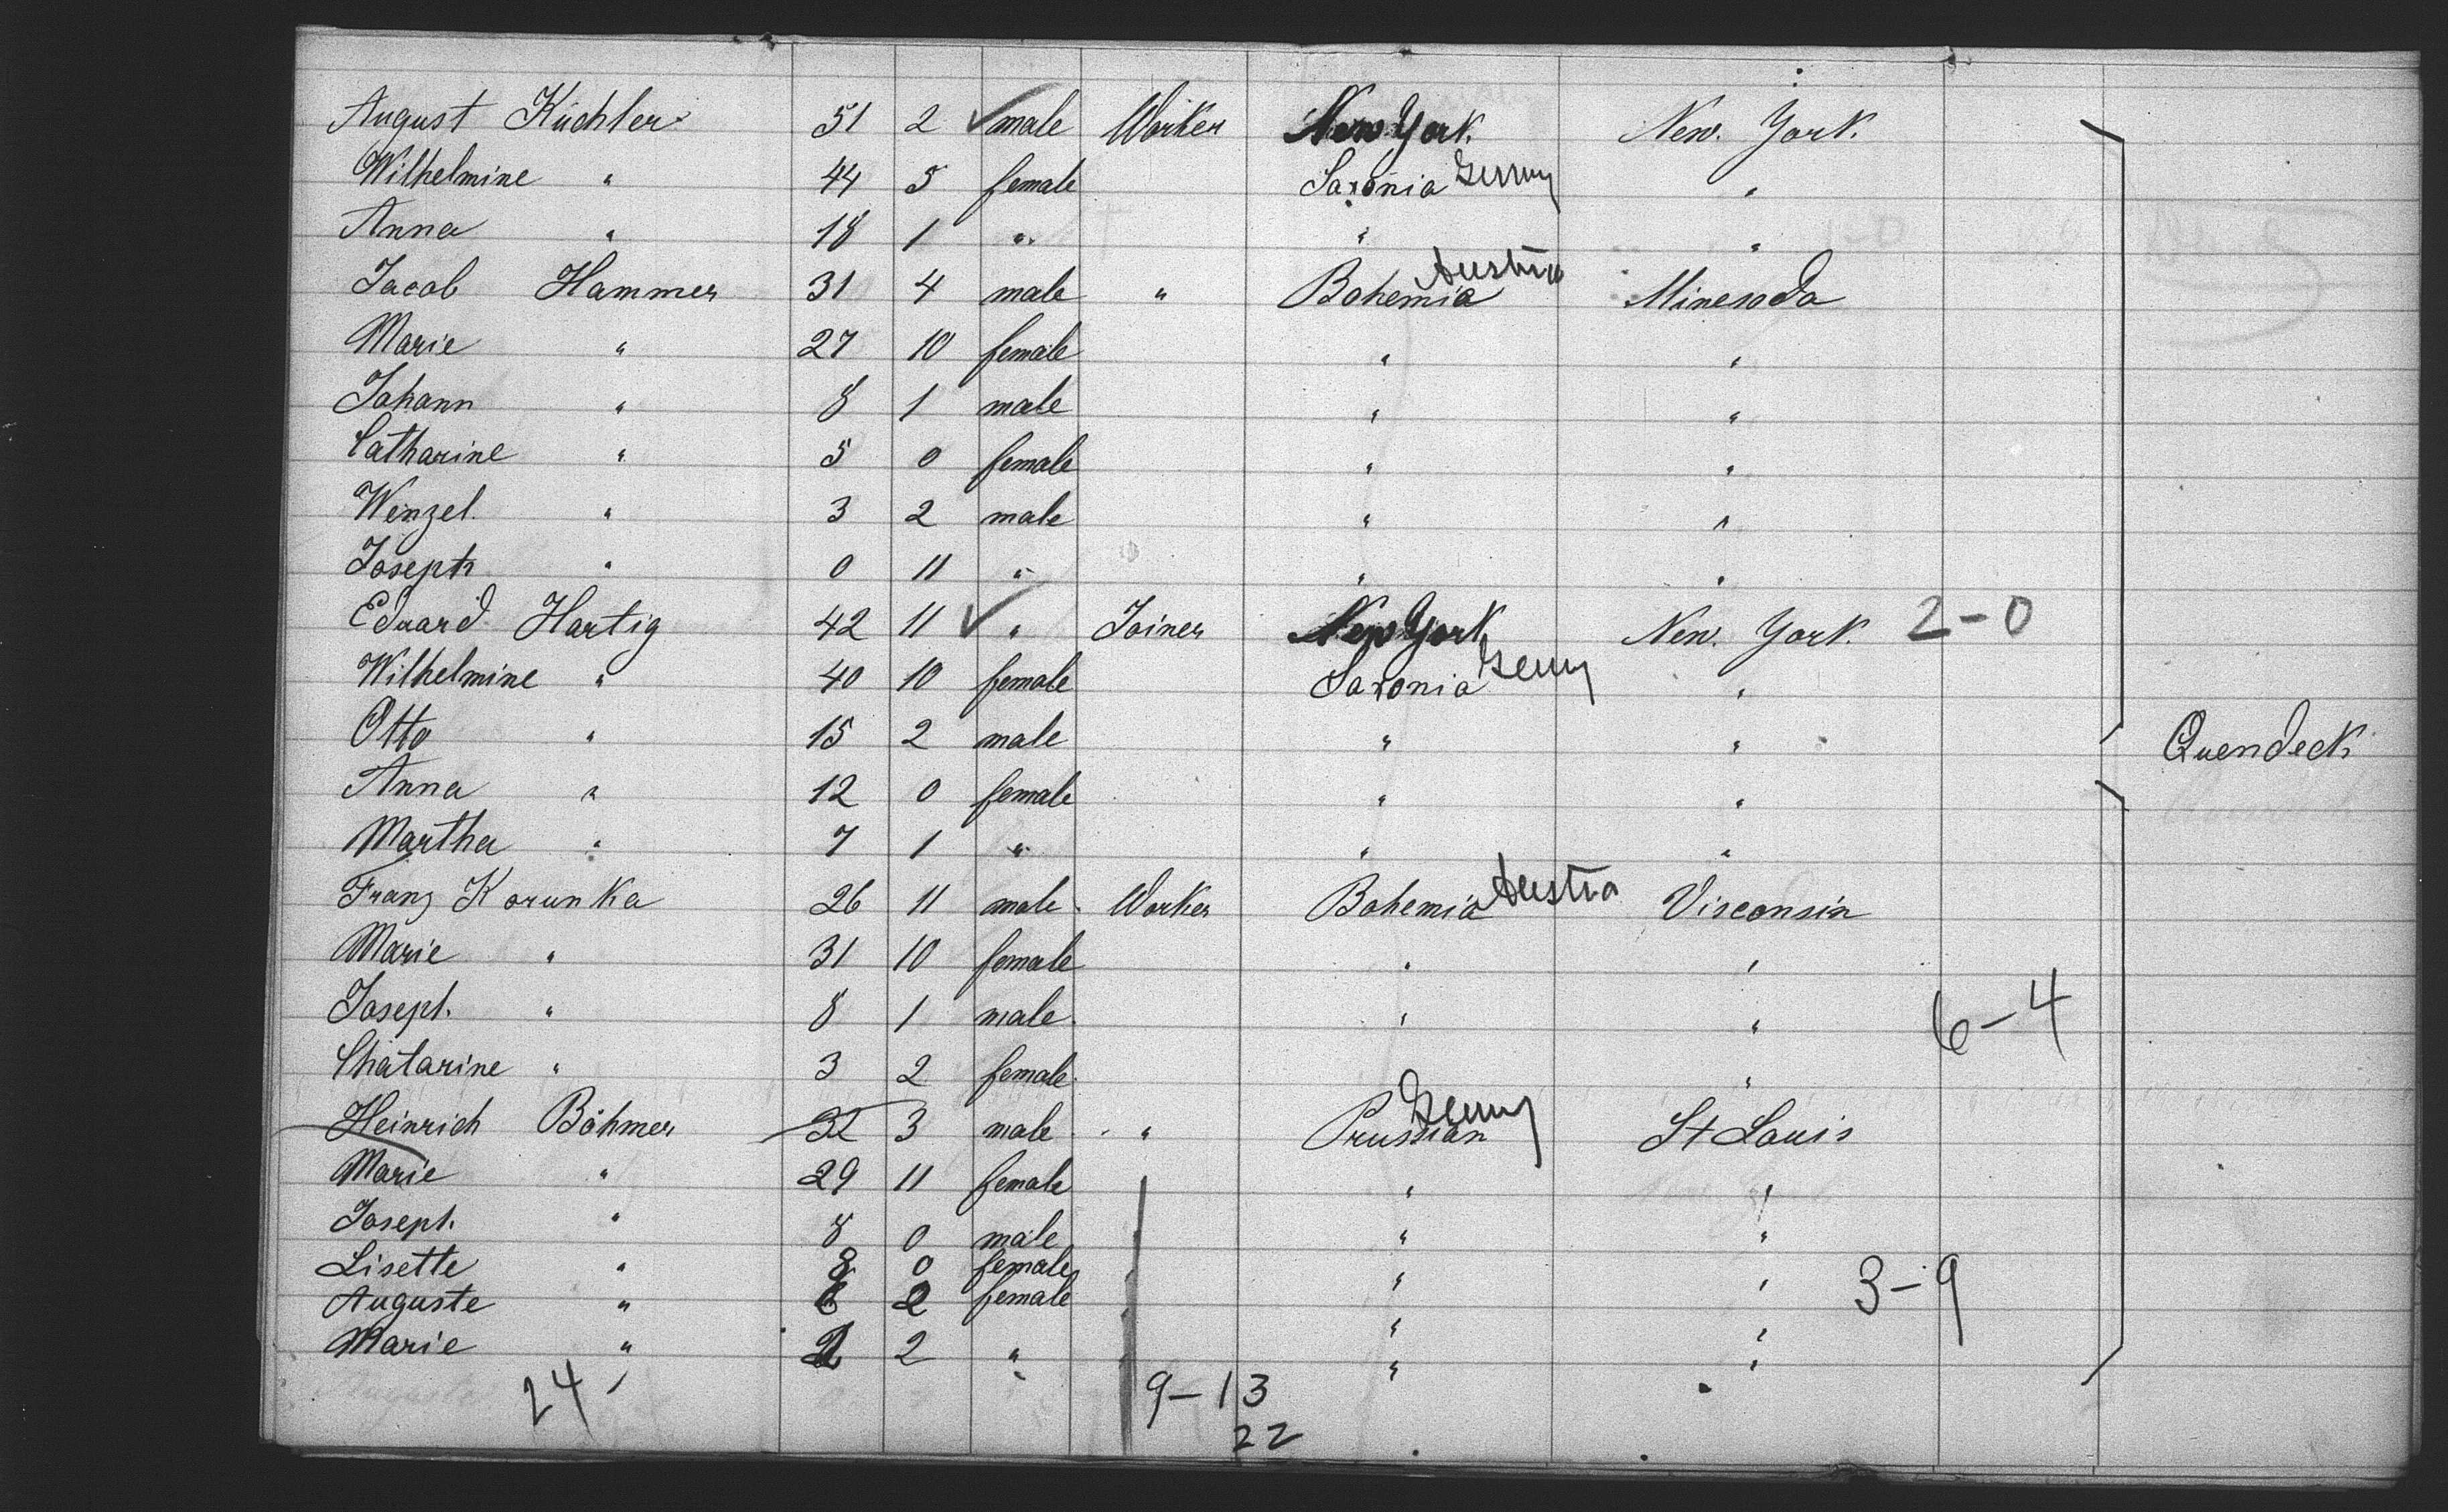 August Küchler 51 2 ✓ male Worker New York New. York.
Wilhelmine " 44 5 female Saxonia Germy "
Anna " 18 1 " " "
Jacob Hammer 31 4 male " Bohemia Austria Minesoda
Marie " 27 10 female " "
Johann " 8 1 male " "
Catharine " 5 0 female " "
Wenzel " 3 2 male " "
Joseph " 0 11 " " "
Eduard Hartig 42 11 ✓ " Joiner New York New. York. 2-0
Wilhelmine " 40 10 female Saxonia Germy "
Otto " 15 2 male " " Quendeck
Anna " 12 0 female " "
Martha " 7 1 " " "
Franz Korunka 26 11 male Worker Bohemia Austria Visconsin
Marie " 31 10 female " "
Joseph. " 8 1 male " " 6-4
Chatarine " 3 2 female "
Heinrich Böhmer 32 3 male " Prussian Germy St Louis
Marie " 29 11 female " "
Joseph. " 8 0 male " "
Lisette " 8 0 female " " 3-9
Auguste " 6 2 female " "
Marie " 2 " " "
24 9-13
22